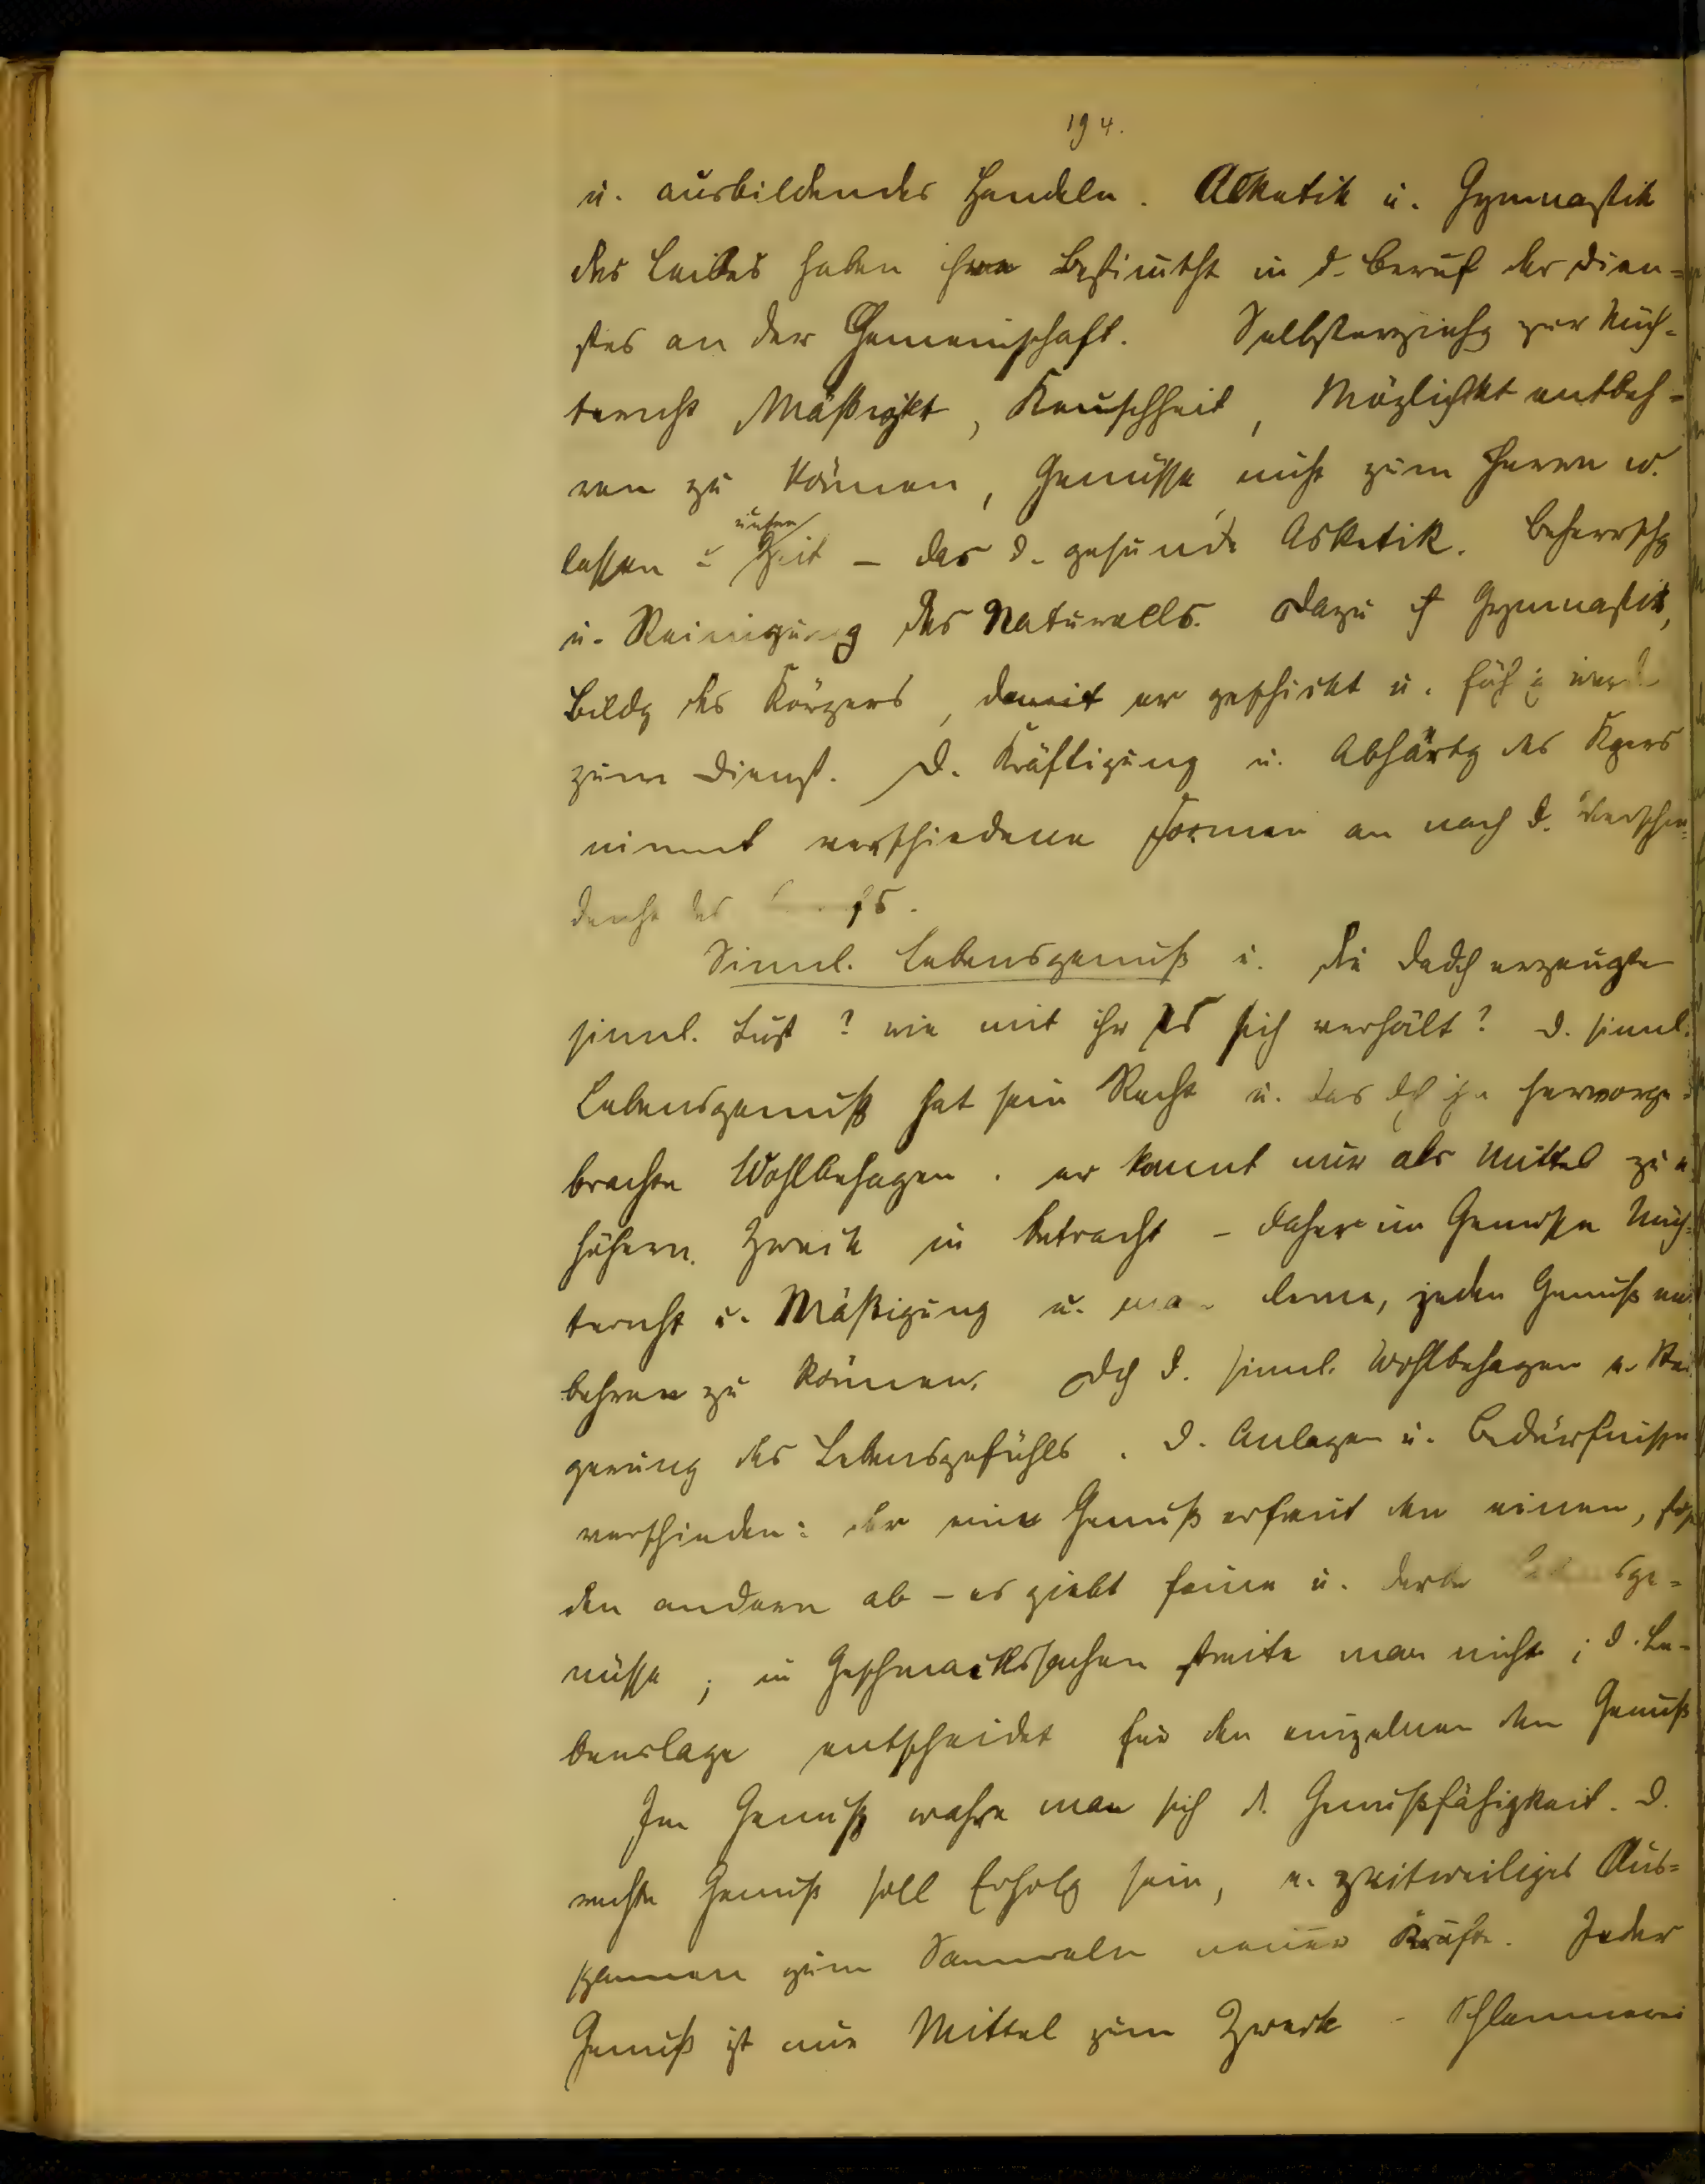 194.
u. ausbildendes Handeln. Asketik u. Gymnastik
des Leibes haben ihre Bestimtht in d. Beruf des Dien=
stes an der Gemeinschaft. Selbsterziehg zur Nüch=
ternht Mäßigkt, Keuschheit, Möglichkt entbeh=
ren zu können, Genüsse nicht zum Herrn w.
lassen u. Zeit – das d. gesunde Asketik. Beherrschg
u. Reinigung des Naturells. Dazu ist Gymnastik,
Bildg des Körpers, damit er geschickt u. fähig werde
zum Dienst. D. Kräftigung u. Abhärtg des Kprs
nimmt verschiedene Formen an nach d. Verschie=
denht des
Sinnl. Lebensgenuß u. die dadch erzeugte
sinnl. Lust? wie mit ihr es sich verhält? D. sinnl.
Lebensgenuß hat sein Recht u. das dch ihn hervorge=
brachte Wohlbehagen. er kommt nur als Mittel zu e.
höhern Zweck in Betracht – daher im Genusse Nüch=
ternht u. Mäßigung u. man lerne, jeden Genuß ent
behren zu können. Dch d. sinnl. Wohlbehagen e. Stei
gerung des Lebensgefühls. D. Anlagen u. Bedürfnisse
verschieden: der eine Genuß erfreut den einen, stößt
den andern ab – es giebt feine u. derbe Lebensge=
nüsse; in Geschmackssachen streite man nicht; d. Le=
benslage entscheidet für den einzelnen den Genuß
Im Genuß wahre man sich d. Genußfähigkeit. D.
rechte Genuß soll Erholg sein, e. zeitweiliges Aus=
spannen zum Sammeln neuer Kräfte. Jeder
Genuß ist nur Mittel zum Zweck – Schlemmerei